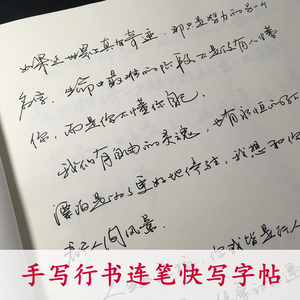 如果这世界上真有奇迹，那只是努力的另一个
名字，生命中最难的阶段不是没有人懂
你，而是你不懂你自己
我们有自由的灵魂，也有
漂泊是为了更好地停驻，我想和你
看人间风景
手写行书连笔快写字帖